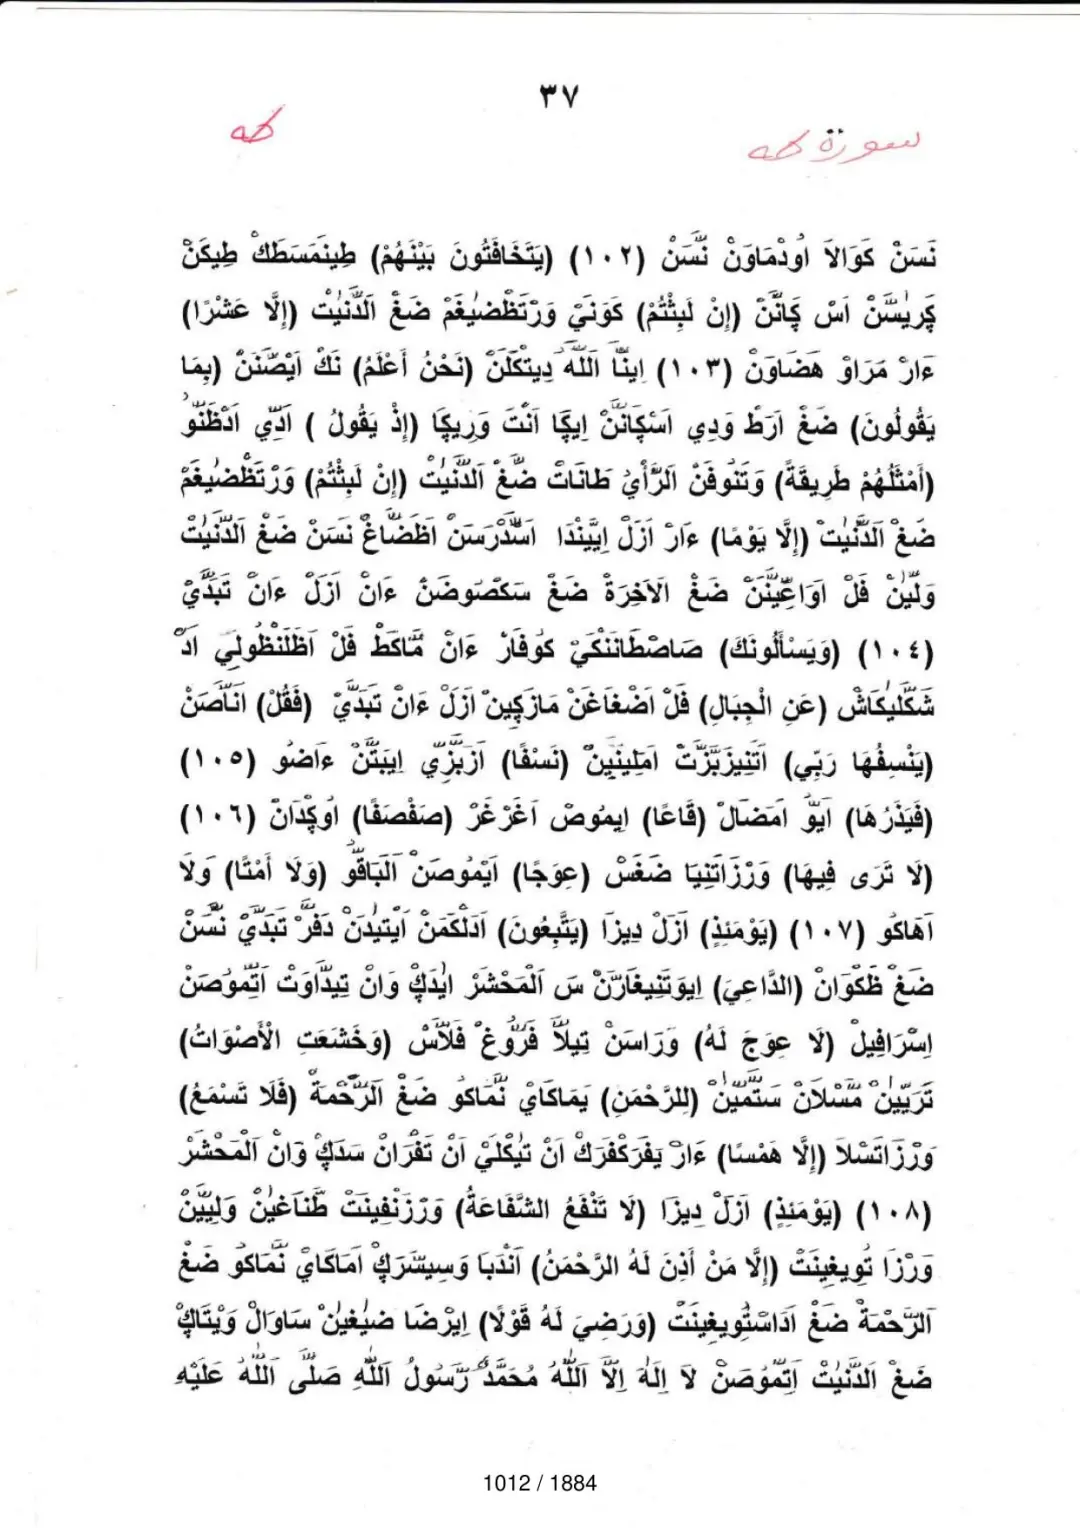 ٣٧
سورة طه
طه
نَسَنْ كَوَالاَ اُودْمَاوَنْ نَّسَنْ (١٠٢) (يَتَخَافَتُونَ بَيْنَهُمْ) طِينَمَسَطَكْ طِيكَنْ
كَرِيسَّنْ اَسْ كَانَّنْ (إِنْ لَبِثْتُمْ) كَوَنَيْ وَرْتَظْضَيْغَمْ ضَغْ اَلدُّنْيَتْ (إِلَّا عَشْرًا)
ءَارْ مَرَاوْ هَضَاوَنْ (١٠٣) اِينَّا اَللَّهْ دِيتْكَلَنْ (نَحْنُ أَعْلَمُ) نَكْ اَيْصَّنَنْ (بِمَا
يَقُولُونَ) ضَغْ اَرَطْ وَدِي اَسْكَانَّنْ اِيكَا اَنْتَ وَرِيكَا (إِذْ يَقُولُ ) اَدِّي اَدْظَنُّو
(أَمْثَلُهُمْ طَرِيقَةً) وَتَنُوفَنْ اَلرَّأْيْ طَانَاتْ ضَغْ اَلدُّنْيَتْ (إِنْ لَبِثْتُمْ) وَرْتَظْضَيْغَمْ
ضَغْ اَلدُّنْيَتْ (إِلَّا يَوْمًا) ءَارْ اَزَلْ اِيَّينْدَا اَسَّدْرَسَنْ اَظَضَّاغْ نَسَنْ ضَغْ اَلدُّنْيَتْ
وَلَّيْنْ فَلْ اَوَاعِيَّنَنْ ضَغْ اَلَاخِرَةْ ضَغْ سَكْصُوضَنْ ءَانْ اَزَلْ ءَانْ تَبَدَّيْ
(١٠٤) (وَيَسْأَلُونَكَ) صَاصْطَانَنْكَيْ كُوفَارْ ءَانْ مَّاكَطْ فَلْ اَظَلَنْظُولِي اَدْ
شَكْلِيكَاشْ (عَنِ الْجِبَالِ) فَلْ اَضْغَاغَنْ مَازَكِينْ اَزَلْ ءَانْ تَبَدَّيْ (فَقُلْ) اَنَّاصَنْ
(يَنْسِفُهَا رَبِّي) اَتَنِيزَبْزَتْ اَمَلِينِينْ (نَسْفًا) اَزَبْزِّي اِيبَتَّنْ ءَاضُو (١٠٥)
(فَيَذَرُهَا) اَيَوُّ اَمَضَالْ (قَاعًا) اِيمُوصْ اَغَرْغَرْ (صَفْصَفًا) اُوكَدَانْ (١٠٦)
(لَا تَرَى فِيهَا) وَرْزَاتَنِيَا ضَغَسْ (عِوَجًا) اَيْمُوصَنْ اَلْبَاقُّو (وَلَا أَمْتًا) وَلَا
اَهَاكُو (١٠٧) (يَوْمَئِذٍ) اَزَلْ دِيزَا (يَتَّبِعُونَ) اَدَلْكَمَنْ اَيْتِيدَنْ دَفَّرْ تَبَدَّيْ نَسَنْ
ضَغْ ظَكْوَانْ (الدَّاعِيَ) اِيوَتَنِيغَارَنْ سَ اَلْمَحْشَرْ اِيدَكْ وَانْ تِيدَّاوَتْ اَتَّمُوصَنْ
اِسْرَافِيلْ (لَا عِوَجَ لَهُ) وَرَاسَنْ تِيلَاّ فَرُّوغْ فَلَاّسْ (وَخَشَعَتِ الْأَصْوَاتُ)
تَرِيَّيْنْ مَّسْلَانْ سَتَّمْيْنْ (لِلرَّحْمَنِ) يَمَاكَايْ نَّمَاكُو ضَغْ اَلرَّحْمَةْ (فَلَا تَسْمَعُ)
وَرْزَاتَسْلَا (إِلَّا هَمْسًا) ءَارْ يَفَرَكْفَرَكْ اَنْ تَيْكَلَيْ اَنْ تَفْرَانْ سَدَكْ وَانْ اَلْمَحْشَرْ
(١٠٨) (يَوْمَئِذٍ) اَزَلْ دِيزَا (لَا تَنْفَعُ الشَّفَاعَةُ) وَرْزَنْفِينَتْ طْنَاغَيْنْ وَلِيَّيْنْ
وَرْزَا تُويغِينَتْ (إِلَّا مَنْ أَذِنَ لَهُ الرَّحْمَنُ) اَنْدَبَا وَسِيسَّرَكْ اَمَاكَايْ نَّمَاكُو ضَغْ
اَلرَّحْمَةْ ضَغْ اَدَاسْتُويغِينَتْ (وَرَضِيَ لَهُ قَوْلًا) اِيرْضَا ضِيغَيْنْ سَاوَالْ وَيْتَاكْ
ضَغْ اَلدُّنْيَتْ اَتَّمُوصَنْ لَا اِلَهَ اِلَّا اَللَّهُ مُحَمَّدٌ رَسُولُ اَللَّهِ صَلَّى اَللَّهُ عَلَيْهِ
1012 / 1884